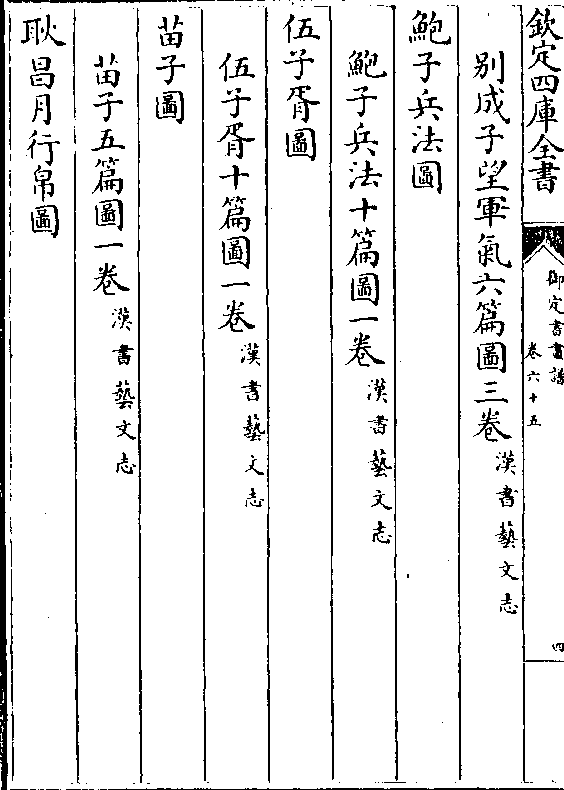 欽定四庫全書
御定書畫譜
卷六十五
四
別成子望軍氣六篇圖三卷漢書藝文志
鮑子兵法圖
鮑子兵法十篇圖一卷漢書藝文志
伍子胥圖
伍子胥十篇圖一卷漢書藝文志
苗子圖
苗子五篇圖一卷漢書藝文志
耿昌月行帛圖